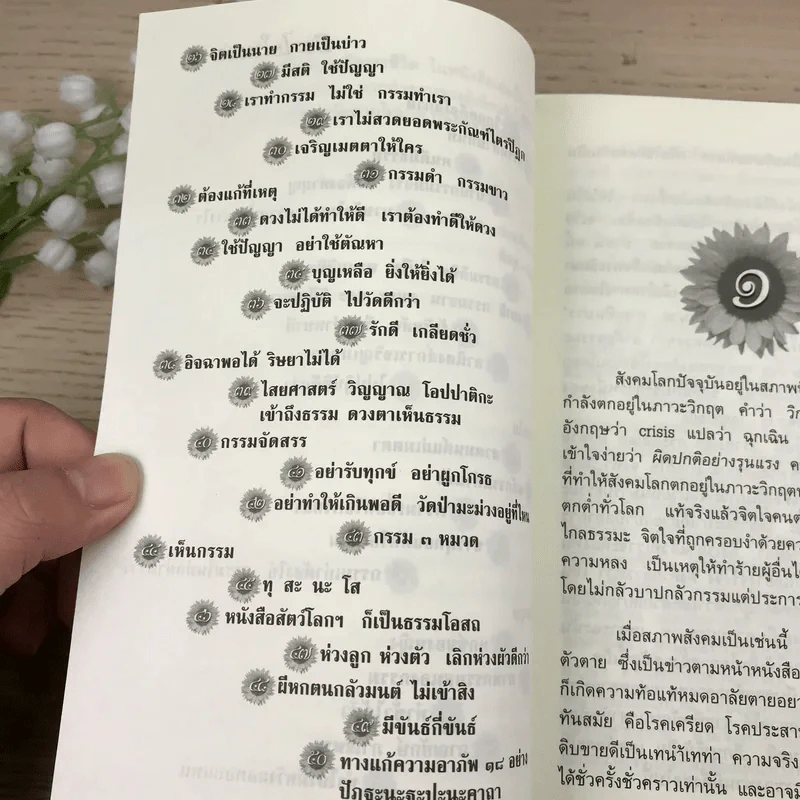 ๒๖ จิตเป็นนาย กายเป็นบ่าว
๒๗ มีสติ ใช้ปัญญา
๒๘ เราทำกรรม ไม่ใช่ กรรมทำเรา
๒๙ เราไม่สวดยอดพระกัณฑ์ไตรปิฎก
๓๐ เจริญเมตตาให้ใคร
๓๑ กรรมดำ กรรมขาว
๓๒ ต้องแก้ที่เหตุ
๓๓ ดวงไม่ได้ทำให้ดี เราต้องทำดีให้ดวง
๓๔ ใช้ปัญญา อย่าใช้ตัณหา
๓๕ บุญเหลือ ยิ่งให้ยิ่งได้
๓๖ จะปฏิบัติ ไปวัดดีกว่า
๓๗ รักดี เกลียดชั่ว
๓๘ อิจฉาพอได้ ริษยาไม่ได้
๓๙ ไสยศาสตร์ วิญญาณ โอปปาติกะ
เข้าถึงธรรม ดวงตาเห็นธรรม
๔๐ กรรมจัดสรร
๔๑ อย่ารับทุกข์ อย่าผูกโกรธ
๔๒ อย่าทำให้เกินพอดี วัดป่ามะม่วงอยู่ที่ไหน
๔๓ กรรม ๓ หมวด
๔๔ เห็นกรรม
๔๕ ทุ สะ นะ โส
๔๖ หนังสือสัตว์โลกฯ ก็เป็นธรรมโอสถ
๔๗ ห่วงลูก ห่วงตัว เลิกห่วงผัวดีกว่า
๔๘ ผีหกตนกลัวมนต์ ไม่เข้าสิง
๔๙ มีขันธ์กี่ขันธ์
๕๐ ทางแก้ความอาภัพ ๑๘ อย่าง
ปัภฐะนะฐะปะนะคาถา
๑
สังคมโลกปัจจุบันอยู่ในสภาพ
กำลังตกอยู่ในภาวะวิกฤต คำว่า
อังกฤษว่า crisis แปลว่า ฉุกเฉิน
เข้าใจง่ายว่า ผิดปกติอย่างรุนแรง
ที่ทำให้สังคมโลกตกอยู่ในภาวะวิกฤต
ตกต่ำทั่วโลก แท้จริงแล้วจิตใจคน
ไกลธรรมะ จิตใจที่ถูกครอบงำด้วย
ความหลง เป็นเหตุให้ทำร้ายผู้อื่น
โดยไม่กลัวบาปกลัวกรรมแต่ประการ
เมื่อสภาพสังคมเป็นเช่นนี้
ตัวตาย ซึ่งเป็นข่าวตามหน้าหนังสือ
ก็เกิดความท้อแท้หมดอาลัยตายอยาก
ทันสมัย คือโรคเครียด โรคประสาท
ดิบขายดีเป็นเทน้ำเทท่า ความจริง
ได้ชั่วครั้งชั่วคราวเท่านั้น และอาจมี